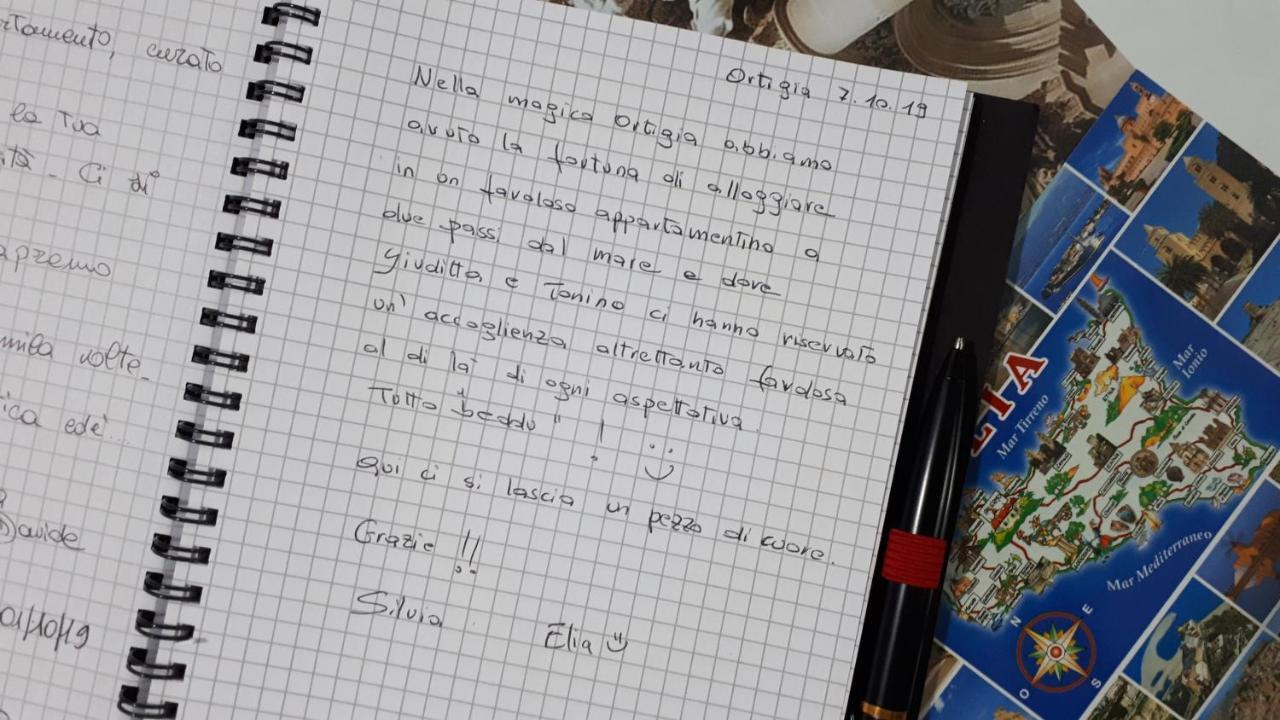 rtamento, curato
la Tua
ità - Ci di
apremo
mila volte -
ica ed è...
Davide
Ortigia 7.10.19
Nella magica Ortigia abbiamo
avuto la fortuna di alloggiare
in un favoloso appartamentino a
due passi dal mare e dove
Giuditta e Tonino ci hanno riservato
un'accoglienza altrettanto favolosa
al di là di ogni aspettativa.
Tutto beddu" ! :)
Qui ci si lascia un pezzo di cuore.
Grazie !!
Silvia Elia
LIA
Mar Tirreno
Mar Ionio
Mar Mediterraneo
N
E
S
O